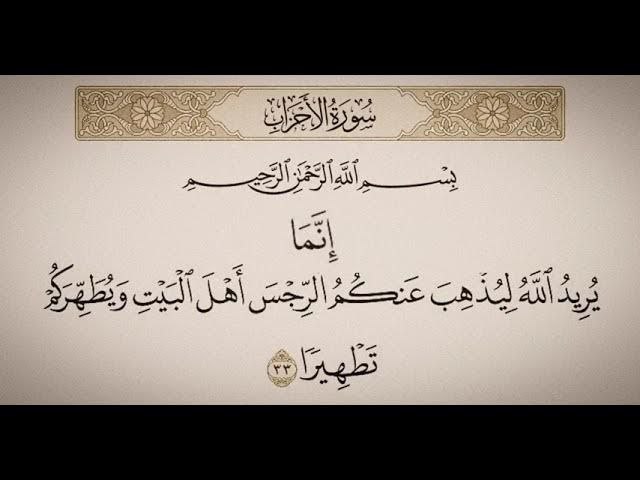 سُورَةُ الأَحْزَابِ
بِسْمِ ٱللَّهِ ٱلرَّحْمَٰنِ ٱلرَّحِيمِ
إِنَّمَا
يُرِيدُ ٱللَّهُ لِيُذْهِبَ عَنكُمُ ٱلرِّجْسَ أَهْلَ ٱلْبَيْتِ وَيُطَهِّرَكُمْ
تَطْهِيرًا ٣٣